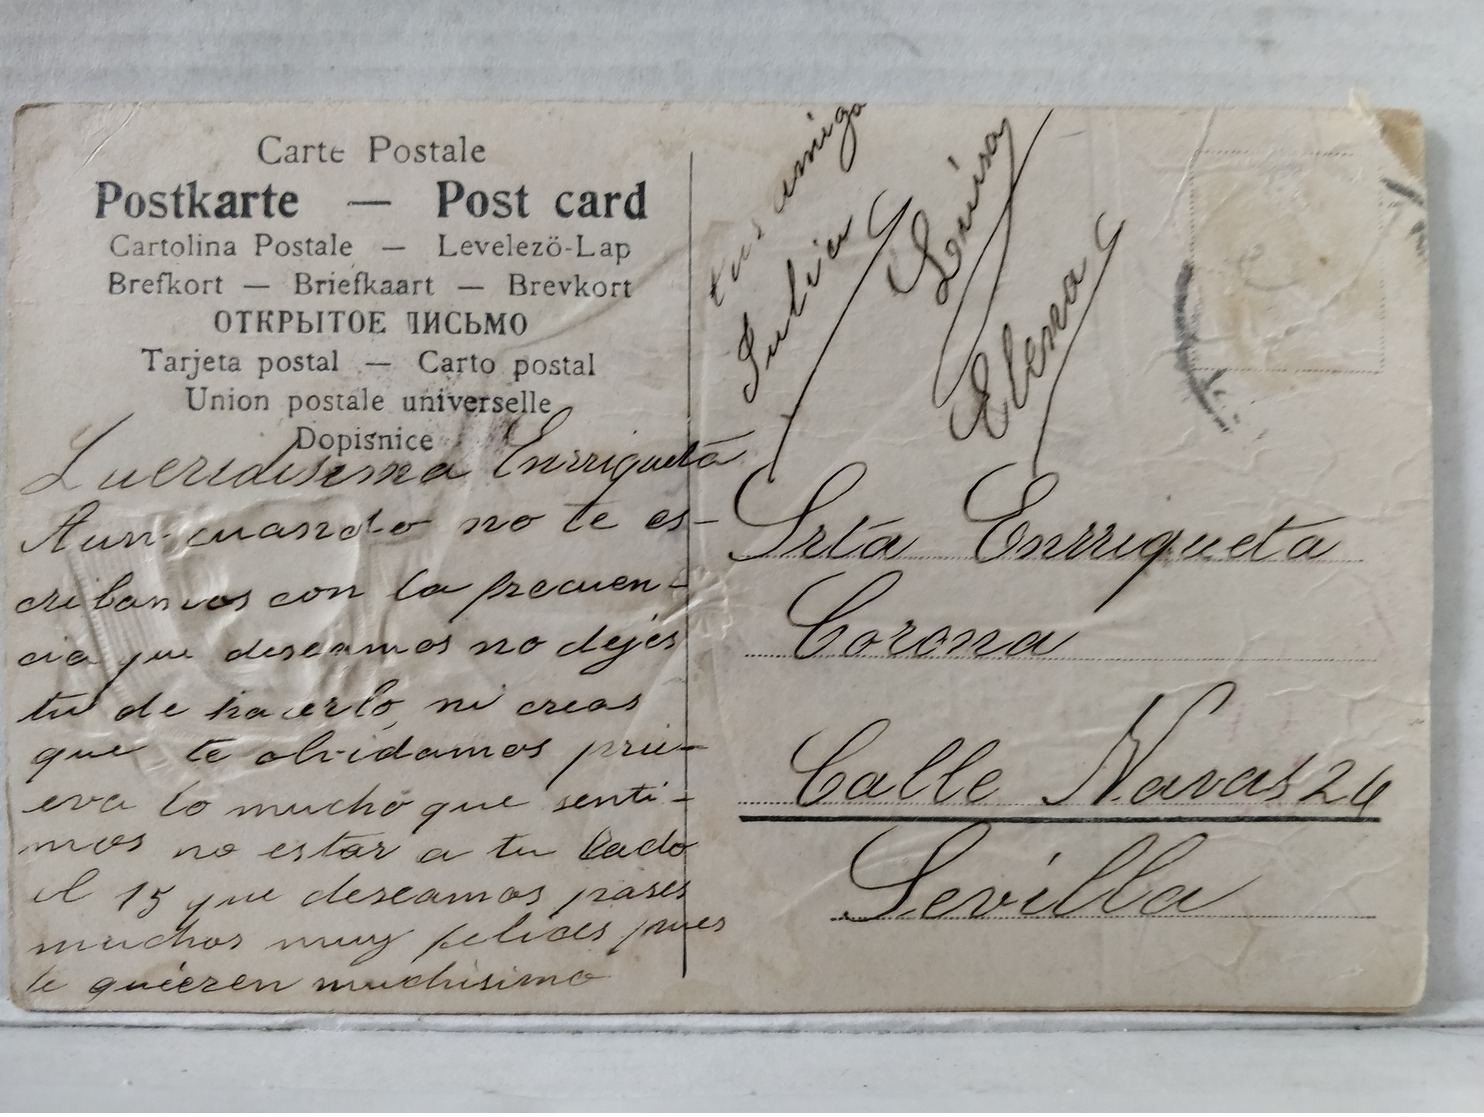 Carte Postale
Postkarte — Post card
Cartolina Postale — Levelezö-Lap
Brefkort — Briefkaart — Brevkort
ОТКРЫТОЕ ПИСЬМО
Tarjeta postal — Carto postal
Union postale universelle
Dopisnice
Queridisima Enrriqueta
Aun cuando no te es-
cribamos con la frecuen-
cia que deseamos no dejes
tu de hacerlo, ni creas
que te olvidamos pru-
eva lo mucho que senti-
mos no estar a tu lado
el 15 que deseamos pases
muchos muy felices pues
te quieren muchisimo
tus amiga
Julia
Luisa
Elena
Srta Enrriqueta
Corona
Calle Navas 26
Sevilla